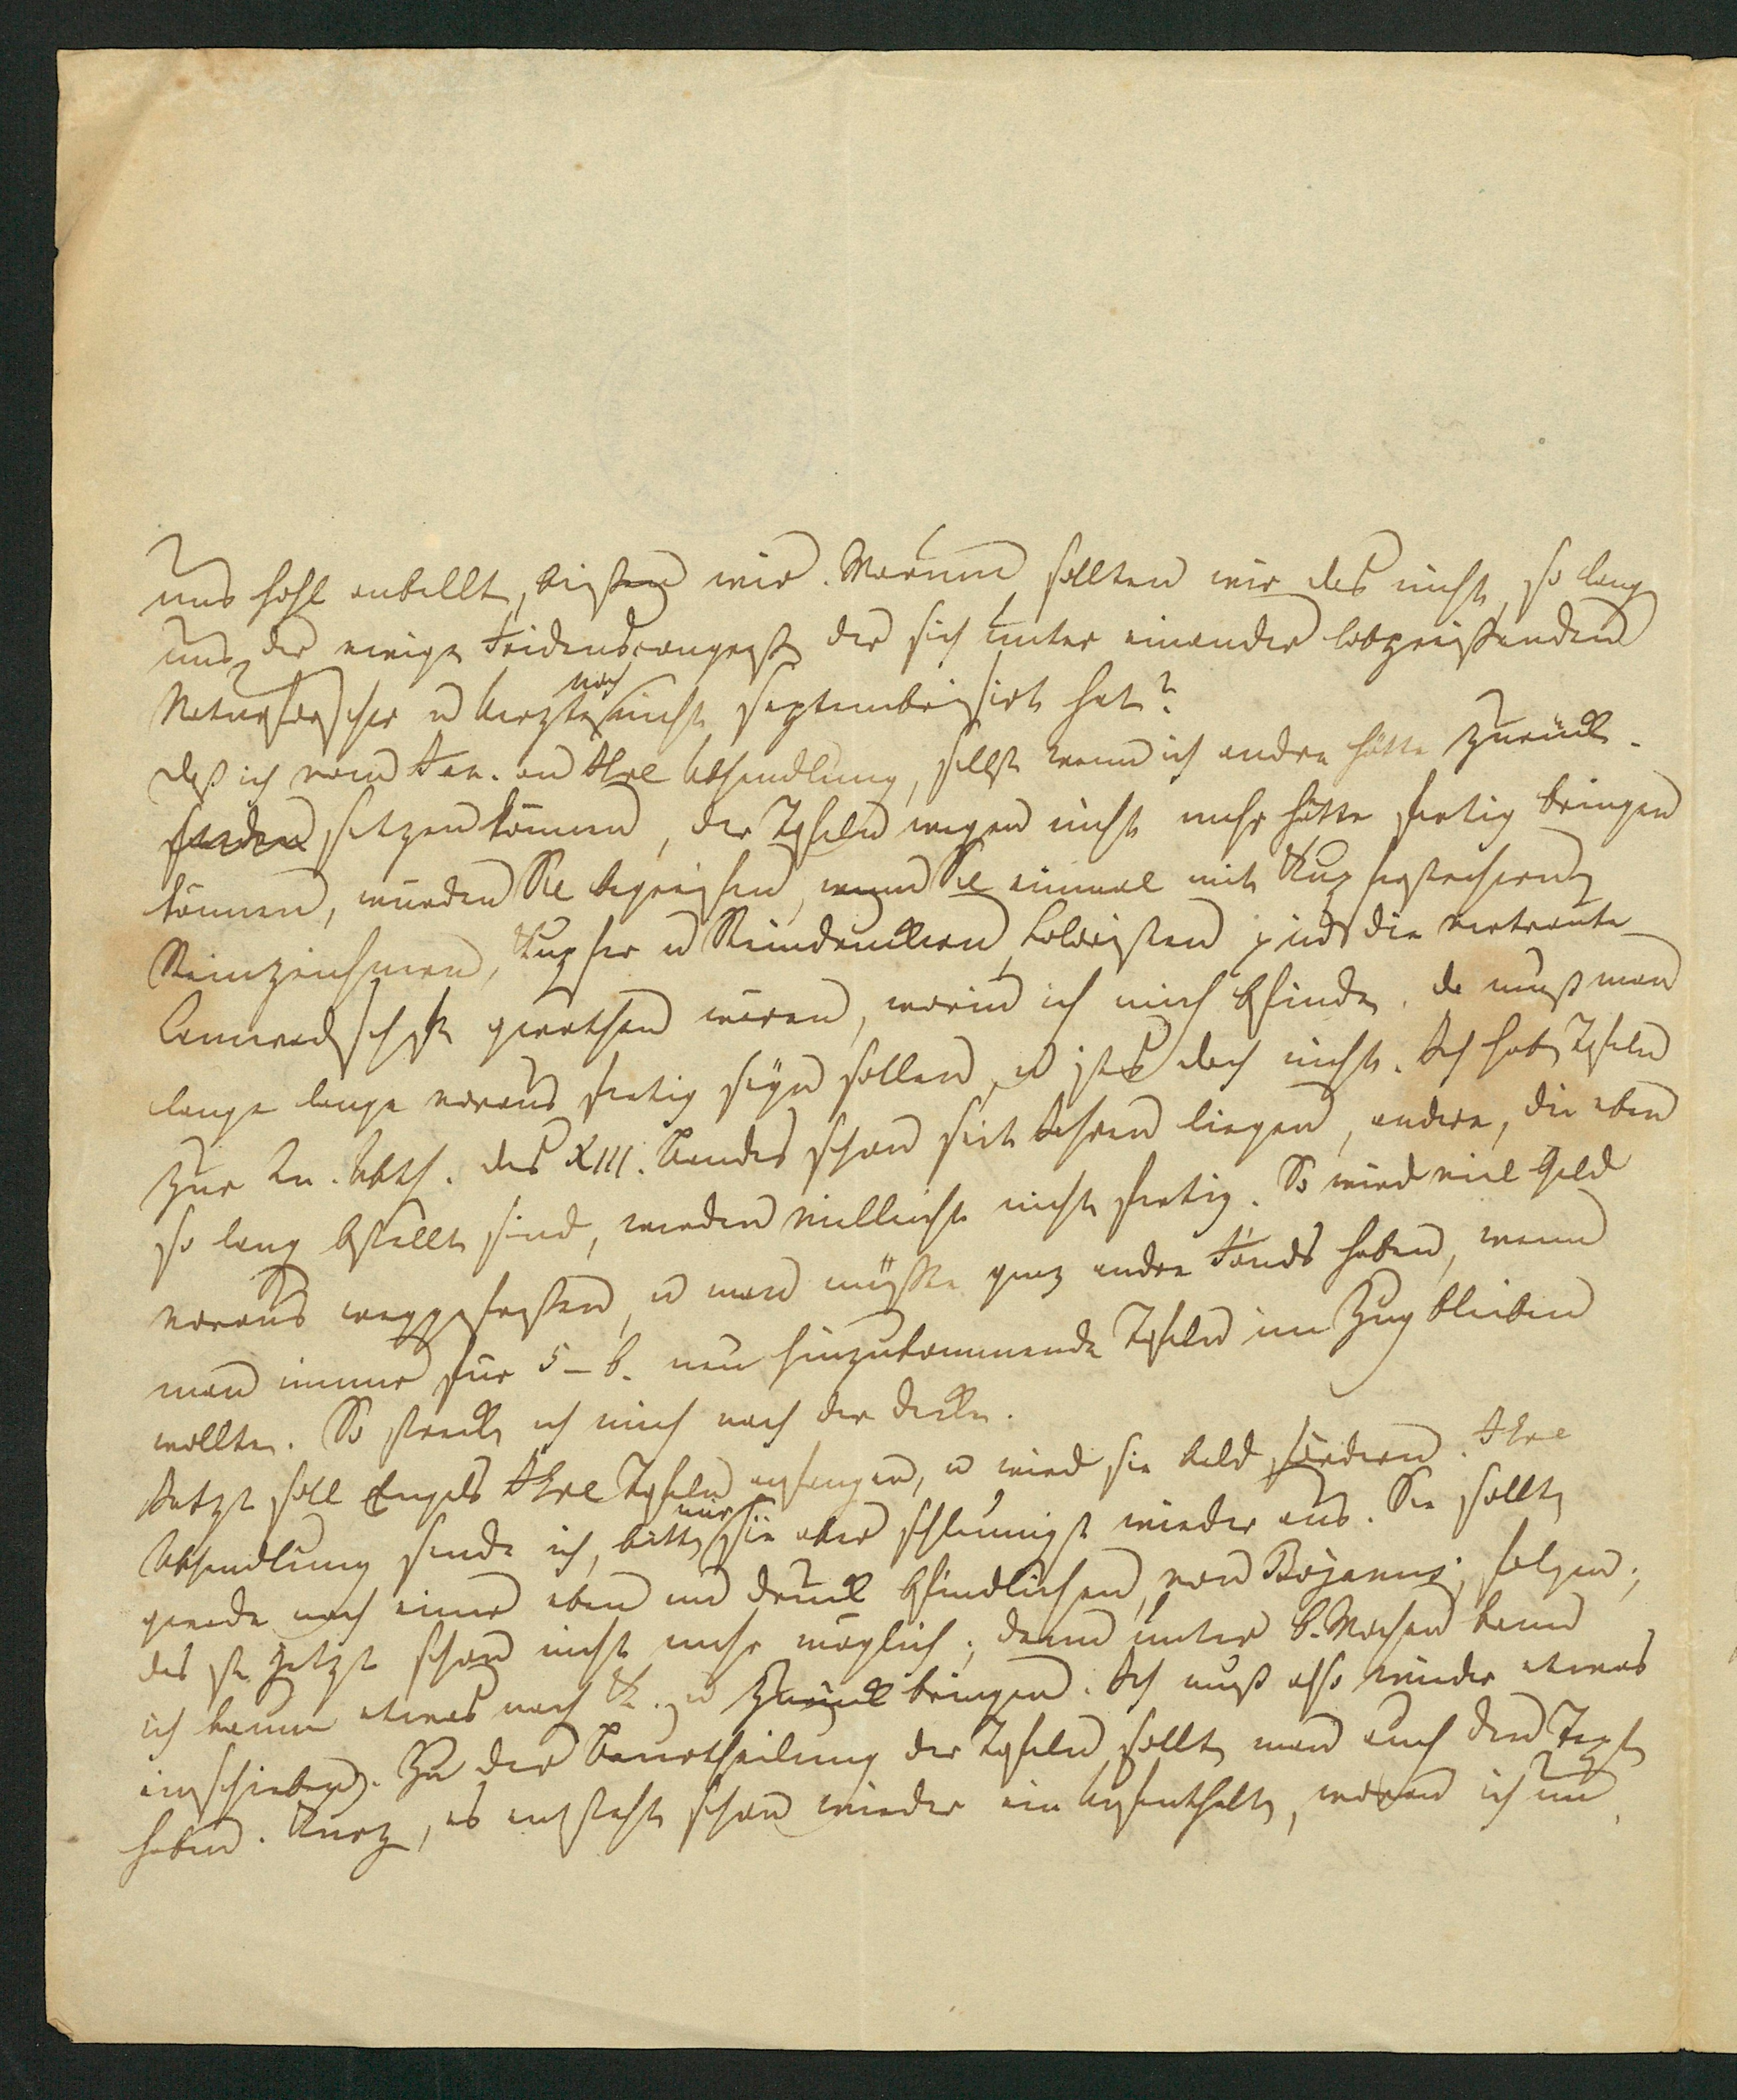 uns hohl anbellt, beißen wir. Warum sollten wir das nicht, so lang
uns der ewige Fridenscongreß der sich unter einander lobpreißenden
Naturforscher u Aerzte noch nicht septembrisirt hat?
Daß ich vom Jan. an Ihre Abhandlung, selbst wenn ich andre hätte zurück-
setzen können, der Tafeln wegen nicht mehr hätte fertig bringen
können, würden Sie begreifen, wenn Sie einmal mit Kupferstechern,
Steinzeichnern, Kupfer u Steindruckern, Coloristen p in die vertraute
Cameradschaft gerathen wären, worin ich mich befinde. Da muß man
lange lange voraus fertig seyn sollen, u ists doch nicht. Ich habe Tafeln
zur 2n. Abth. des XIII. Bandes schon seit Jahren liegen, andere, die eben
so lang bestellt sind, werden vielleicht nicht fertig. So wird viel Geld
voraus weggefressen, u man müßte ganz andre Fonds haben, wenn
man immer für 5-6. neu hinzukommende Tafeln im Zug bleiben
wollte. So streck ich mich nach der Decke.
Jetzt soll Engels Ihre Tafeln anfangen, u wird sie bald fördern. Ihre
Abhandlung sende ich, bitte mir sie aber schleunigst wieder aus. Sie sollte
gerade nach einer eben im Druck befindlichen, von Bojanus, folgen;
das ist jetzt schon nicht mehr möglich; denn unter 6. Wochen kann
ich kaum etwas nach K. u zurück bringen. Ich muß also wieder etwas
einschieben. Zu der Beurtheilung der Tafeln sollte man auch den Text
haben. Kurz, es entsteht schon wieder ein Aufenthalt, woran ich un